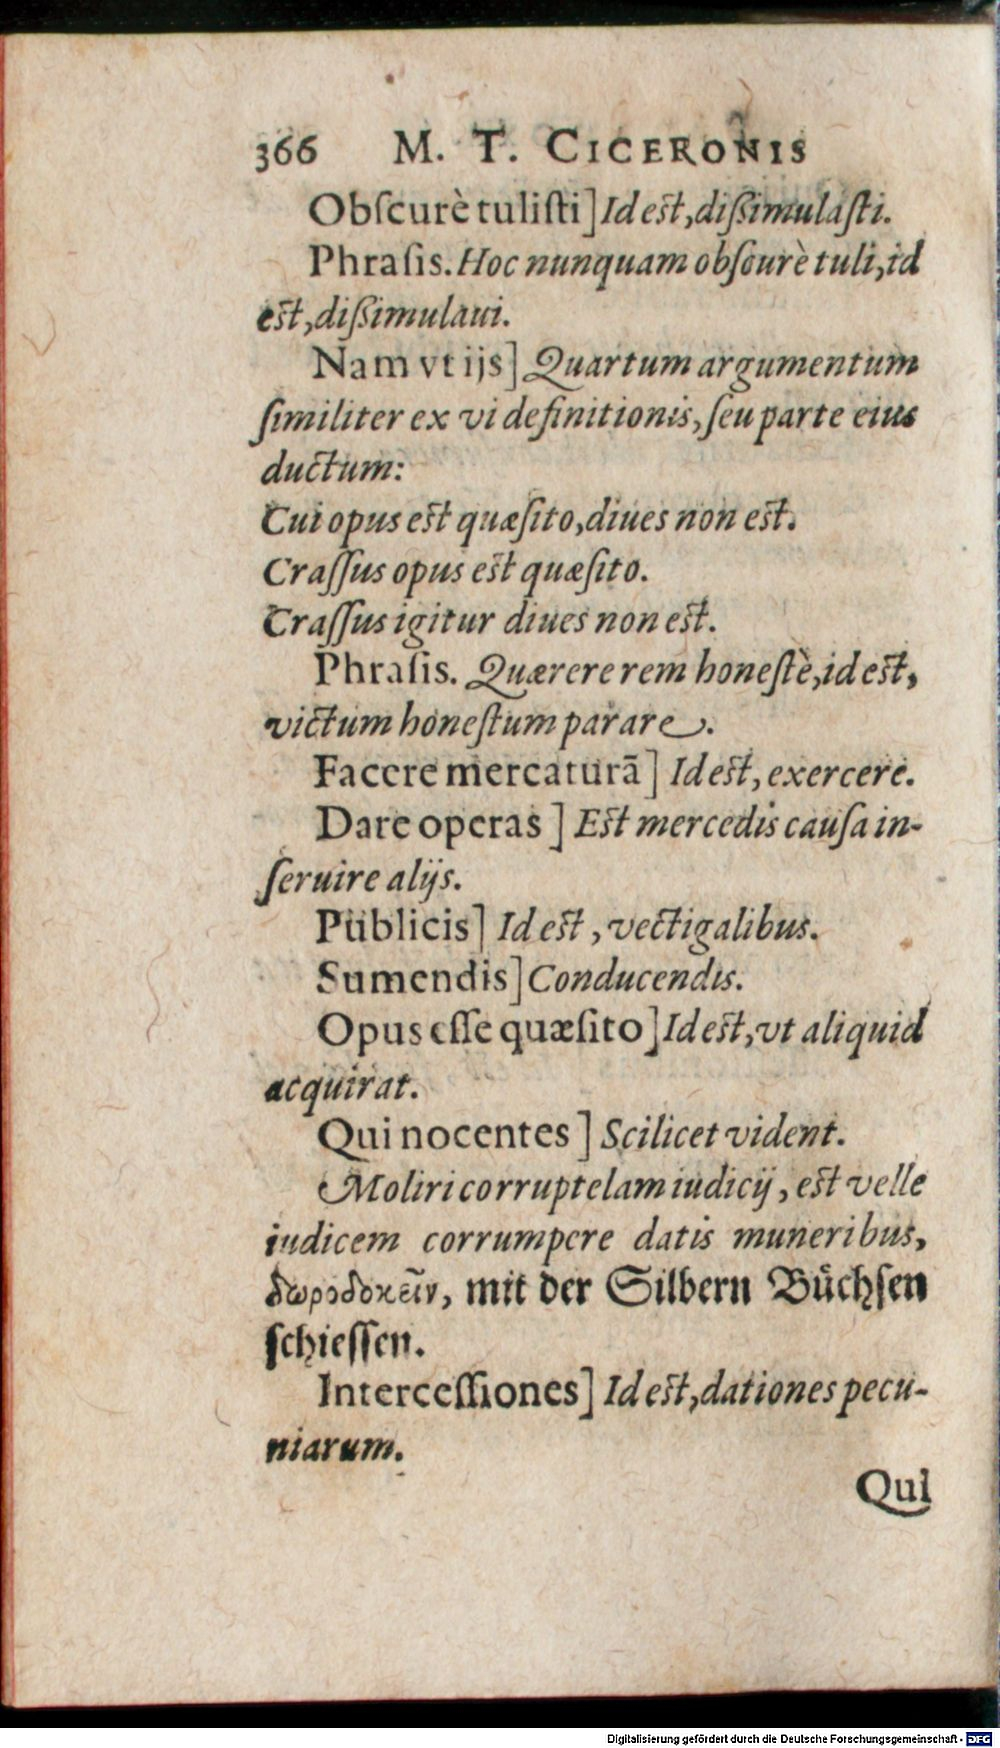 366 M. T. CICERONIS
Obſcurè tuliſti] Id eſt, diſſimulaſti.
Phraſis. Hoc nunquam obſcurè tuli, id
eſt, diſſimulaui.
Nam vt ijs] Quartum argumentum
ſimiliter ex vi definitionis, ſeu parte eius
ductum:
Cui opus eſt quæſito, diues non eſt.
Craſſus opus eſt quæſito.
Craſſus igitur diues non eſt.
Phraſis. Quærere rem honeſtè, id eſt,
victum honeſtum parare.
Facere mercaturā] Id eſt, exercere.
Dare operas] Eſt mercedis cauſa in-
ſeruire alijs.
Publicis] Id eſt, vectigalibus.
Sumendis] Conducendis.
Opus eſſe quæſito] Id eſt, vt aliquid
acquirat.
Qui nocentes] Scilicet vident.
Moliri corruptelam iudicij, eſt velle
iudicem corrumpere datis muneribus,
δωροδοκεῖν, mit der Silbern Büchſen
ſchieſſen.
Interceſſiones] Id eſt, dationes pecu-
niarum.
Qui
Digitalisierung gefördert durch die Deutsche Forschungsgemeinschaft - DFG